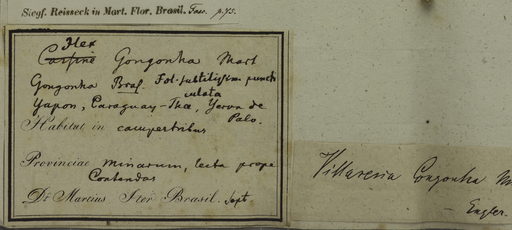 Siegf. Reisseck in Mart. Flor. Brasil. Fasc. p.75.
Ilex
Cassine Gongonha Mart
Gongonha Bras. Fol. subtilissim. punct
ulata
Yapon, Caraguay-Thee, Yerva de
Palo.
Habitat in campestribus
Provinciae Minarum, lecta prope
Contendas
Dr Martius Iter Brasil. Sept.
Villaresia Congonha M
Engler.